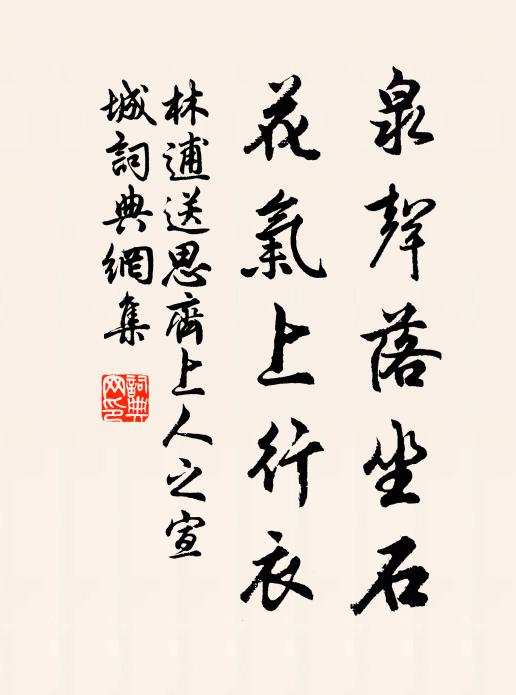 泉聲落坐石
花氣上行衣
林逋送思齊上人之宣
城詞典網集
詞典网印